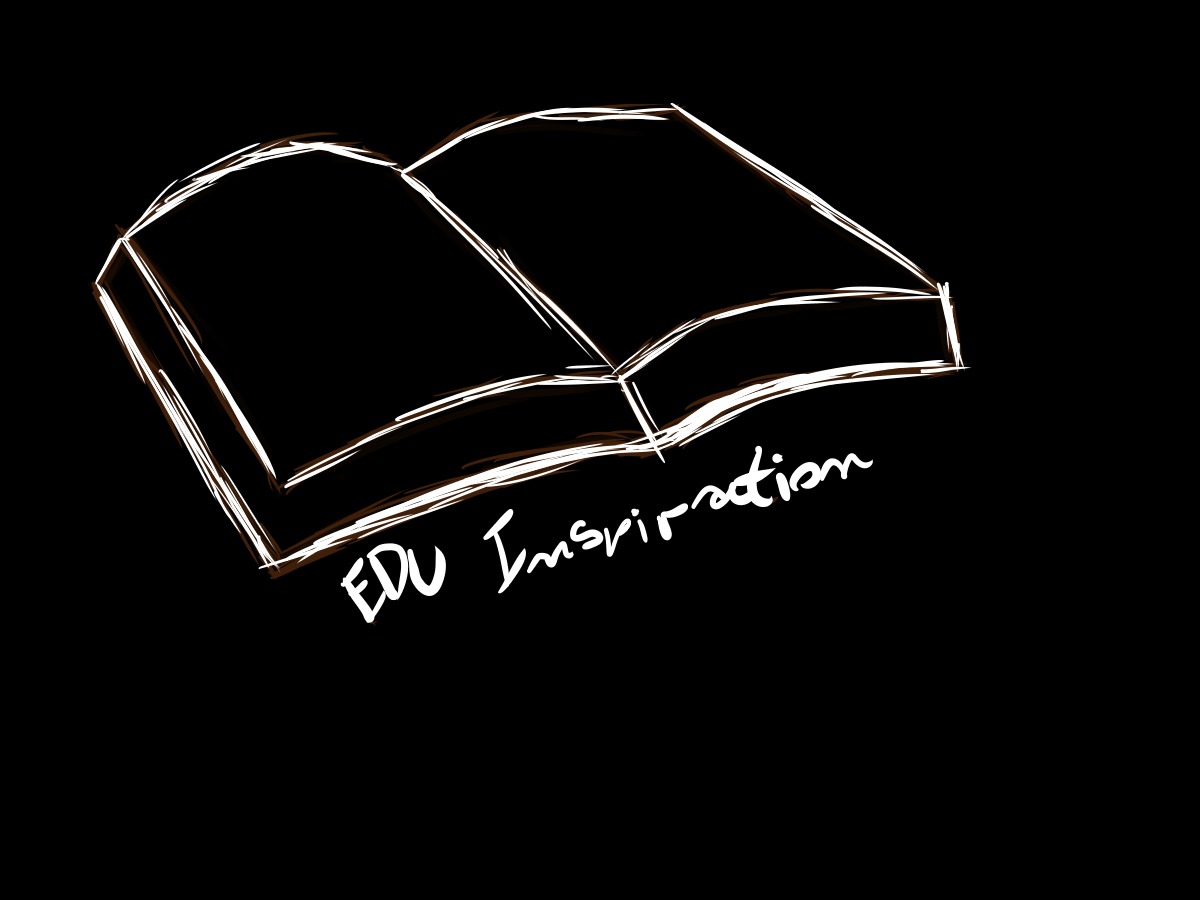 EDU Inspiraction